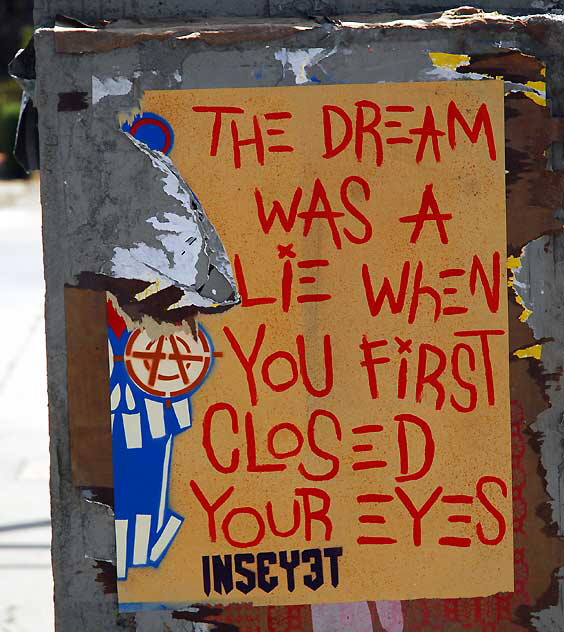 THE DREAM
WAS A
LiE WhEN
YOU FiRST
CLOSED
YOUR EYES
INSEY3T